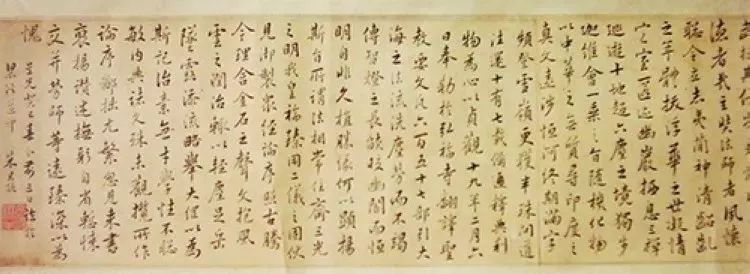 德者哉玄奘法師者夙懷
聰令立志夷簡神清齠齔
之年體拔浮華之世凝情
定室匿迹幽巖栖息三禪
巡遊十地超六塵之境獨步
迦維會一乘之旨隨機化物
以中華之無質尋印度之
真文遠涉恒河終期滿字
頻登雪嶺更獲半珠問道
法還十有七載備通釋典利
物爲心以貞觀十九年二月六
日奉勅於弘福寺翻譯聖
教要文凡六百五十七部引大
海之法流洗塵勞而不竭
傳智燈之長燄皎幽闇而恒
明自非久植勝緣何以顯揚
斯旨所謂法相常住齊三光
之明我皇福臻同二儀之固伏
見御製衆經論序照古騰
今理含金石之聲文抱風
雲之潤治輒以輕塵足岳
墜露添流略舉大綱以爲
斯記治素無才學性不聰
敏內典諸文殊未觀攬所作
論序鄙拙尤繁忽見來書
褒揚讚述撫躬自省慙悚
交并勞師等遠臻深以爲
愧